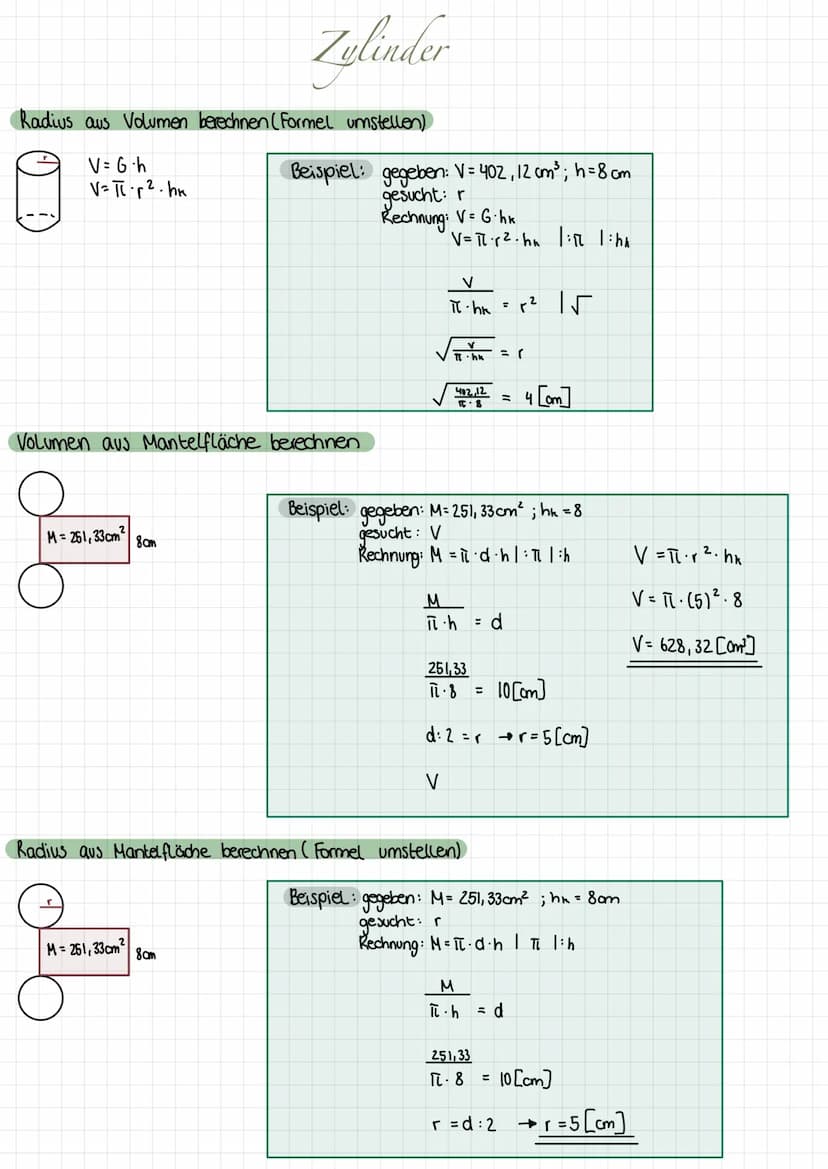 Zylinder
Radius aus Volumen berechnen (Formel umstellen)
r
V = G·h
V = π·r²·hₖ
Beispiel: gegeben: V = 402,12 cm³ ; h = 8 cm
gesucht: r
Rechnung: V = G·hₖ
V = π·r²·hₖ |:π |:hₖ
V/(π·hₖ) = r² |√
√(V/(π·hₖ)) = r
√(402,12/(π·8)) = 4 [cm]
Volumen aus Mantelfläche berechnen
M = 251,33cm² 8cm
Beispiel: gegeben: M = 251,33cm² ; hₖ = 8
gesucht: V
Rechnung: M = π·d·h |:π |:h
M/(π·h) = d
251,33/(π·8) = 10 [cm]
d:2 = r → r = 5 [cm]
V
V = π·r²·hₖ
V = π·(5)²·8
V = 628,32 [cm³]
Radius aus Mantelfläche berechnen (Formel umstellen)
r
M = 251,33cm² 8cm
Beispiel: gegeben: M = 251,33cm² ; hₖ = 8cm
gesucht: r
Rechnung: M = π·d·h | π |:h
M/(π·h) = d
251,33/(π·8) = 10 [cm]
r = d:2 → r = 5 [cm]